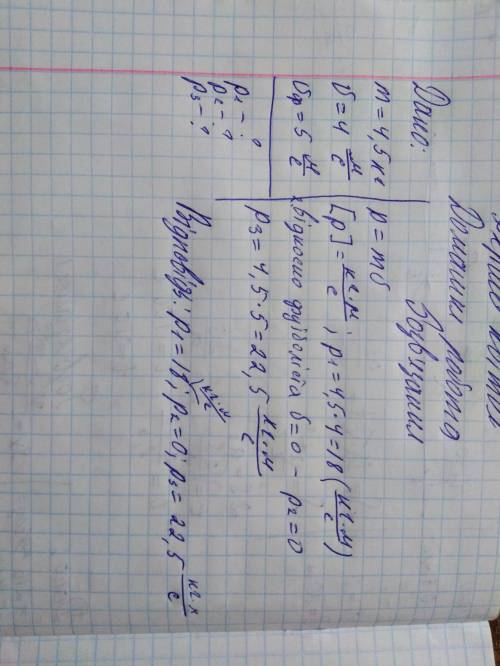 Домашня робота
Розв'язання
Дано:
m = 4,5 кг
v = 4 м/с
vф = 5 м/с
p1 - ?
p2 - ?
p3 - ?
p = mv
[p] = кг·м/с; p1 = 4,5·4 = 18 (кг·м/с)
відносно футболіста v = 0 – p2 = 0
p3 = 4,5·5 = 22,5 кг·м/с
Відповідь: p1 = 18 кг·м/с; p2 = 0; p3 = 22,5 кг·м/с